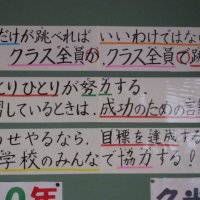 だけが跳べれば いいわけではな
クラス全員が、クラス全員で跳
とりひとりが努力する。
習しているときは、成功のための言
わせやるなら、目標を達成する
学校のみんなで協力する!
0年